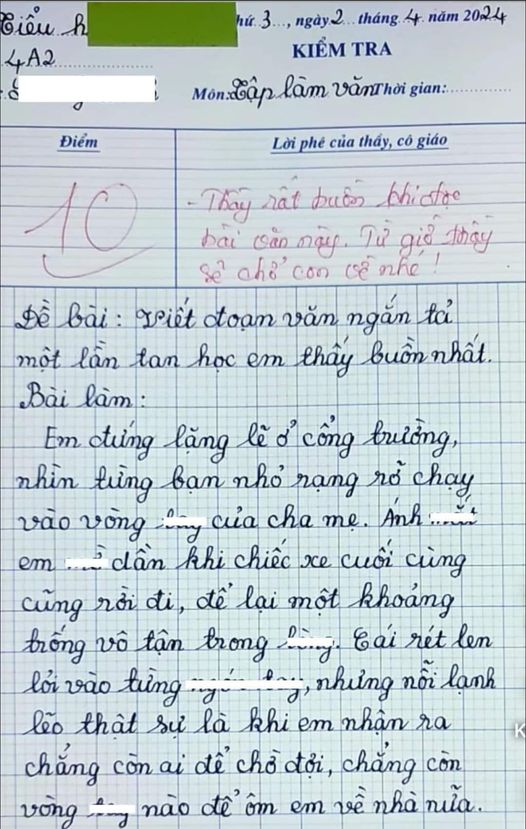 Tiểu h
hứ 3..., ngày 2... tháng 4. năm 2024
4A2
KIỂM TRA
Môn: Tập làm văn Thời gian:
Điểm
Lời phê của thầy, cô giáo
10
- Thầy rất buồn khi đọc
bài văn này. Từ giờ thầy
sẽ chở con về nhé!
Đề bài: Viết đoạn văn ngắn tả
một lần tan học em thấy buồn nhất.
Bài làm:
Em đứng lặng lẽ ở cổng trường,
nhìn từng bạn nhỏ rạng rỡ chạy
vào vòng của cha mẹ. Ánh
em dần khi chiếc xe cuối cùng
cũng rời đi, để lại một khoảng
trống vô tận trong. Cái rét len
lỏi vào từng, nhưng nỗi lạnh
lẽo thật sự là khi em nhận ra
chẳng còn ai để chờ đợi, chẳng còn
vòng nào để ôm em về nhà nữa.
K